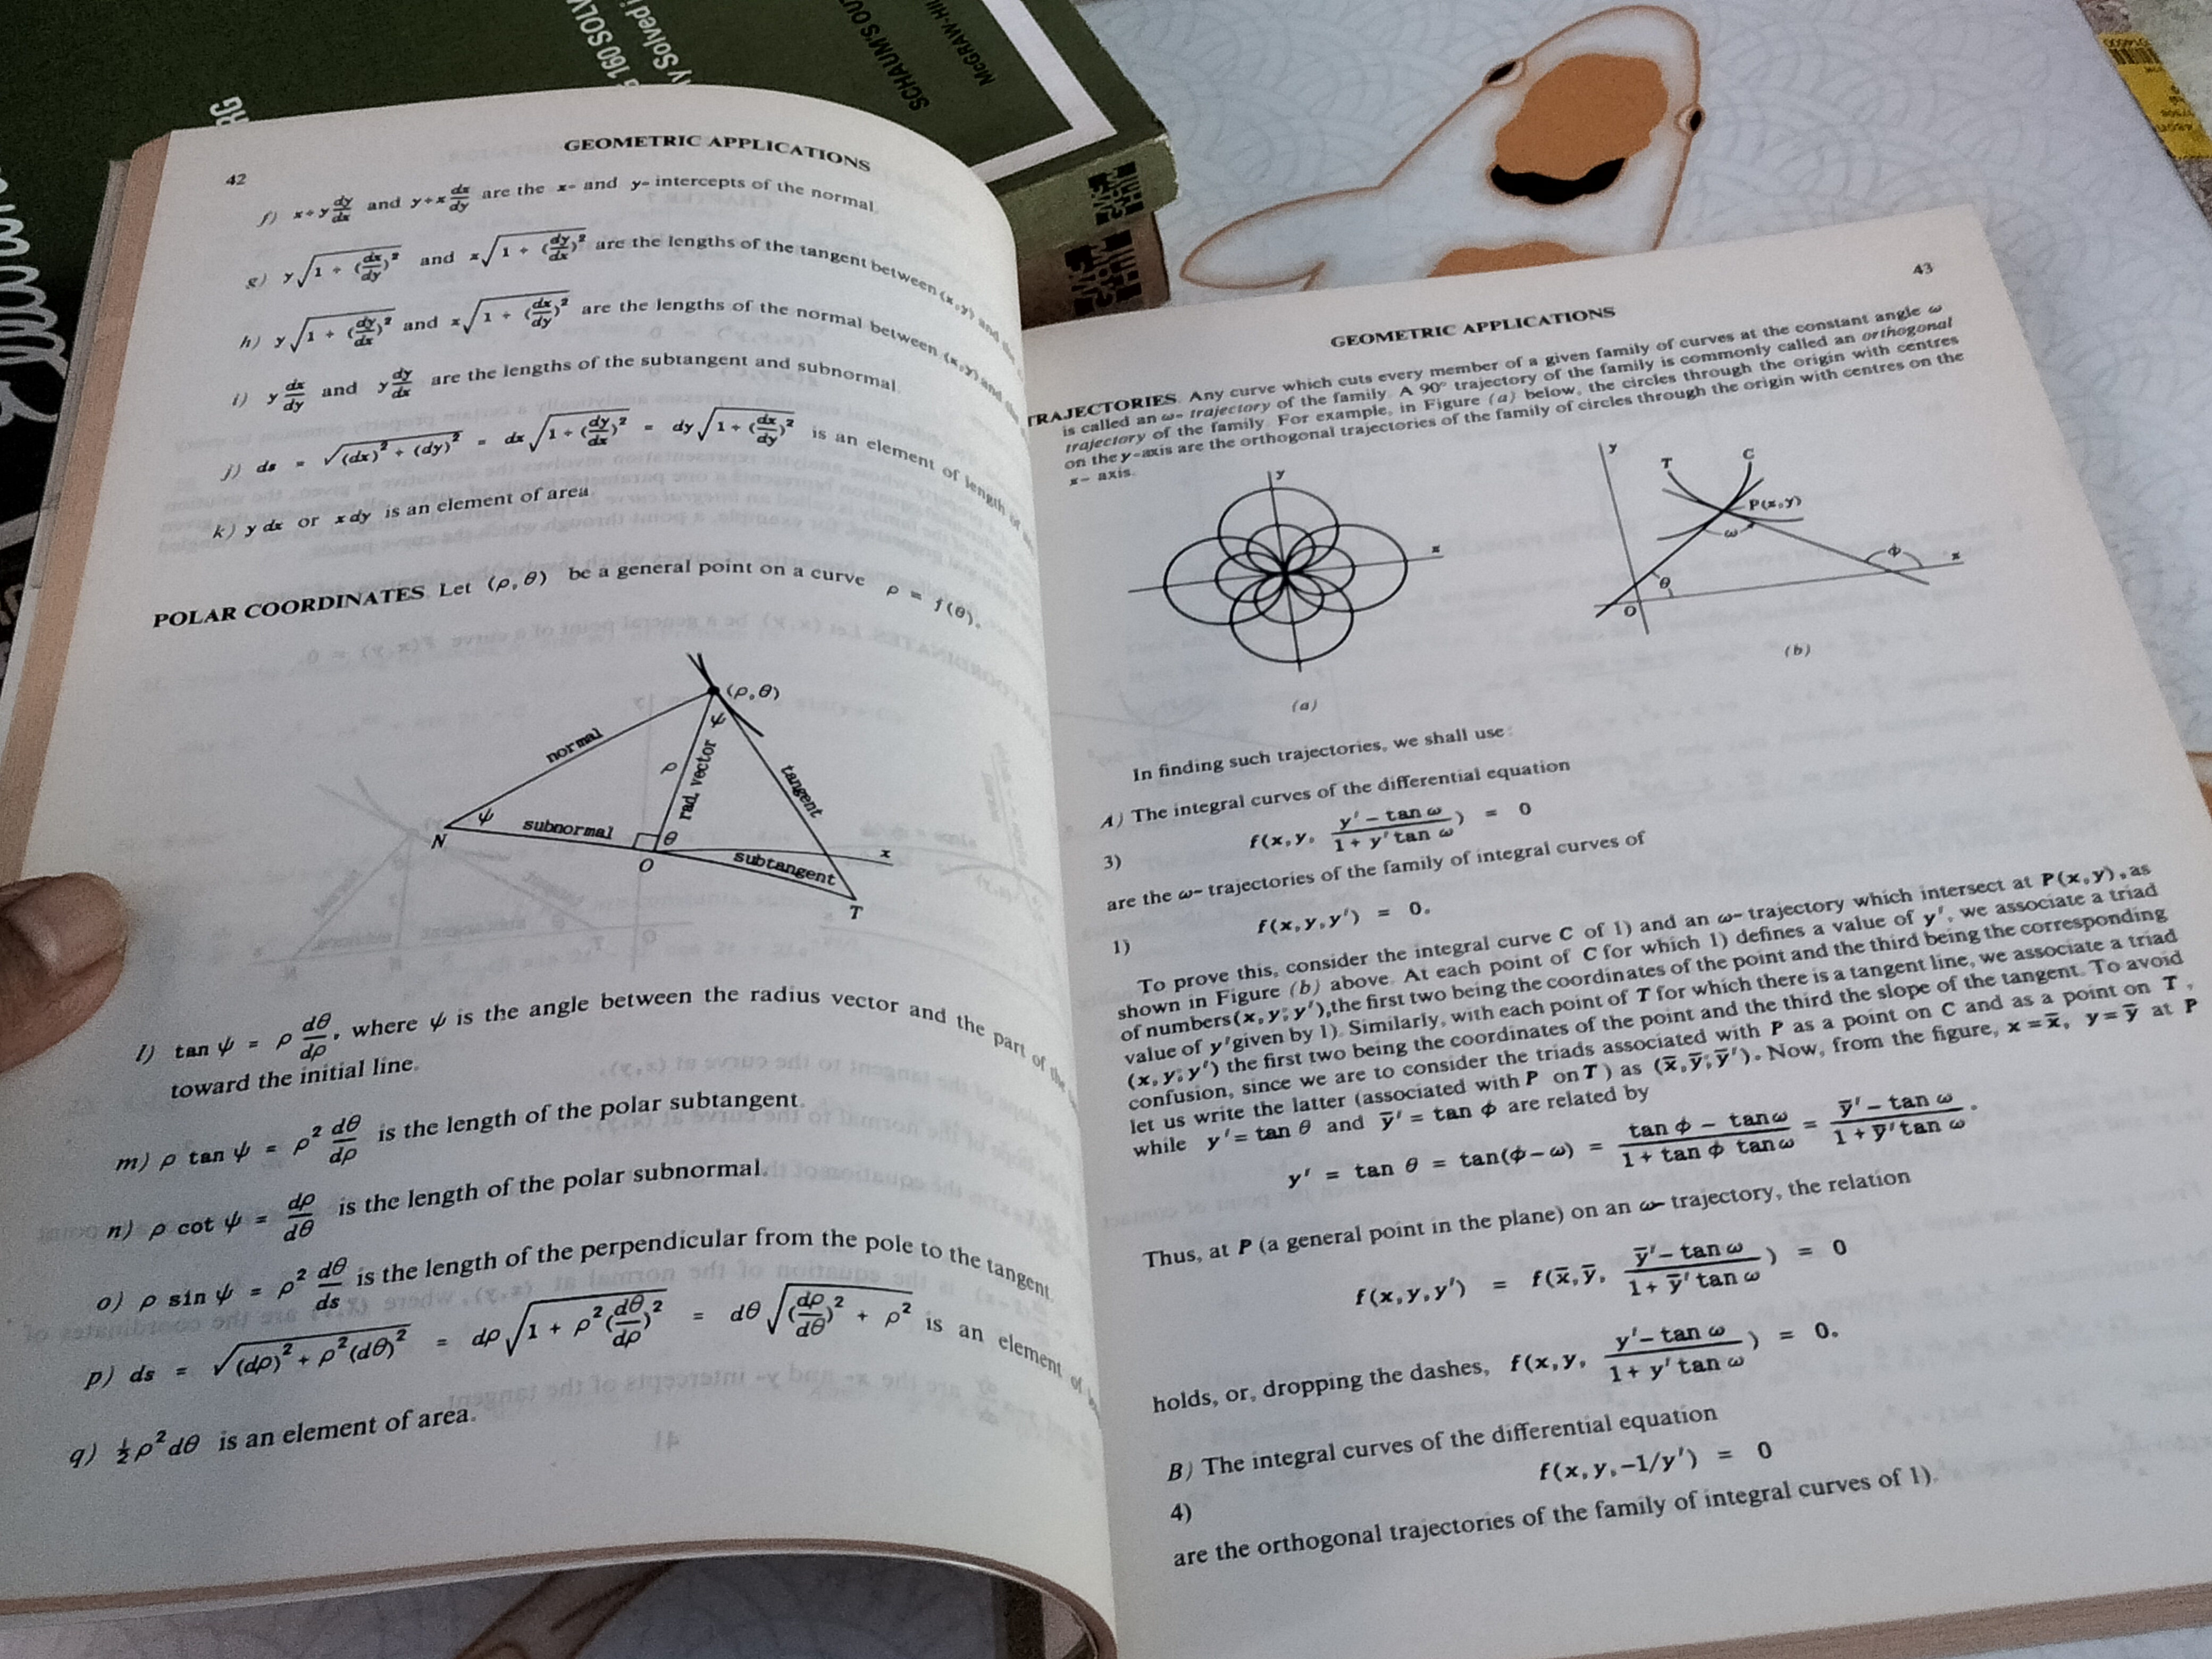 RG
160 SOLV
y Solved i
SCHAUM'S OU
McGRAW-HIL
42
GEOMETRIC APPLICATIONS
f) x+y dy/dx and y+x dx/dy are the x- and y- intercepts of the normal.
g) y√(1 + (dx/dy)²) and x√(1 + (dy/dx)²) are the lengths of the tangent between (x,y) and the
h) y√(1 + (dy/dx)²) and x√(1 + (dx/dy)²) are the lengths of the normal between (x,y) and the
i) y dx/dy and y dy/dx are the lengths of the subtangent and subnormal.
j) ds = √((dx)² + (dy)²) = dx√(1 + (dy/dx)²) = dy√(1 + (dx/dy)²) is an element of length of
k) y dx or x dy is an element of area
POLAR COORDINATES. Let (ρ,θ) be a general point on a curve ρ = f(θ).
(ρ,θ)
ψ
normal
ρ
rad. vector
tangent
ψ
subnormal
θ
N
O
subtangent
x
T
l) tan ψ = ρ dθ/dρ, where ψ is the angle between the radius vector and the part of the
toward the initial line.
m) ρ tan ψ = ρ² dθ/dρ is the length of the polar subtangent.
n) ρ cot ψ = dρ/dθ is the length of the polar subnormal.
o) ρ sin ψ = ρ² dθ/ds is the length of the perpendicular from the pole to the tangent.
p) ds = √((dρ)² + ρ²(dθ)²) = dρ√(1 + ρ²(dθ/dρ)²) = dθ√((dρ/dθ)² + ρ²) is an element of
q) ½ρ²dθ is an element of area.
43
GEOMETRIC APPLICATIONS
TRAJECTORIES. Any curve which cuts every member of a given family of curves at the constant angle ω
is called an ω- trajectory of the family. A 90° trajectory of the family is commonly called an orthogonal
trajectory of the family. For example, in Figure (a) below, the circles through the origin with centres
on the y-axis are the orthogonal trajectories of the family of circles through the origin with centres on the
x- axis.
y
x
(a)
y
T
C
P(x,y)
ω
θ
ϕ
x
O
(b)
In finding such trajectories, we shall use:
A) The integral curves of the differential equation
3) f(x,y, (y' - tan ω)/(1 + y' tan ω)) = 0
are the ω- trajectories of the family of integral curves of
1) f(x,y,y') = 0.
To prove this, consider the integral curve C of 1) and an ω- trajectory which intersect at P(x,y), as
shown in Figure (b) above. At each point of C for which 1) defines a value of y', we associate a triad
of numbers (x,y;y'), the first two being the coordinates of the point and the third being the corresponding
value of y' given by 1). Similarly, with each point of T for which there is a tangent line, we associate a triad
(x,y;y') the first two being the coordinates of the point and the third the slope of the tangent. To avoid
confusion, since we are to consider the triads associated with P as a point on C and as a point on T,
let us write the latter (associated with P on T) as (x̄,ȳ;ȳ'). Now, from the figure, x=x̄, y=ȳ at P
while y' = tan θ and ȳ' = tan ϕ are related by
y' = tan θ = tan(ϕ-ω) = (tan ϕ - tan ω)/(1 + tan ϕ tan ω) = (ȳ' - tan ω)/(1 + ȳ' tan ω).
Thus, at P (a general point in the plane) on an ω- trajectory, the relation
f(x,y,y') = f(x̄,ȳ, (ȳ' - tan ω)/(1 + ȳ' tan ω)) = 0
holds, or, dropping the dashes, f(x,y, (y' - tan ω)/(1 + y' tan ω)) = 0.
B) The integral curves of the differential equation
4) f(x,y,-1/y') = 0
are the orthogonal trajectories of the family of integral curves of 1).